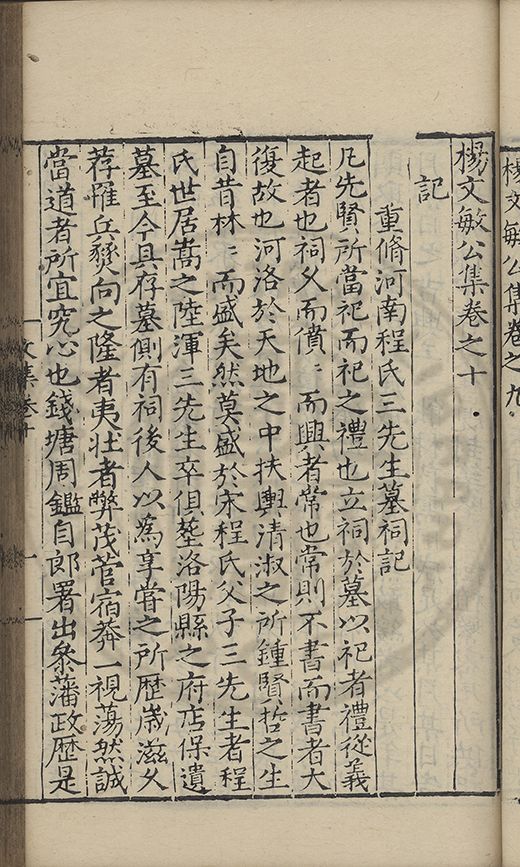 楊文敏公集卷之九
楊文敏公集卷之十
記
重脩河南程氏三先生墓祠記
凡先賢所當祀而祀之禮也立祠於墓以祀者禮從義
起者也祠久而僨僨而興者常也常則不書而書者大
復故也河洛於天地之中扶輿清淑之所鍾賢哲之生
自昔林林而盛矣然莫盛於宋程氏父子三先生者程
氏世居嵩之陸渾三先生卒俱塟洛陽縣之府店保遺
墓至今具存墓側有祠後人以為享嘗之所歷歲滋久
荐罹兵燹向之隆者夷壯者弊茂菅宿莽一視蕩然誠
當道者所宜究心也錢塘周鑑自郎署出叅藩政歷是
文集卷十
一